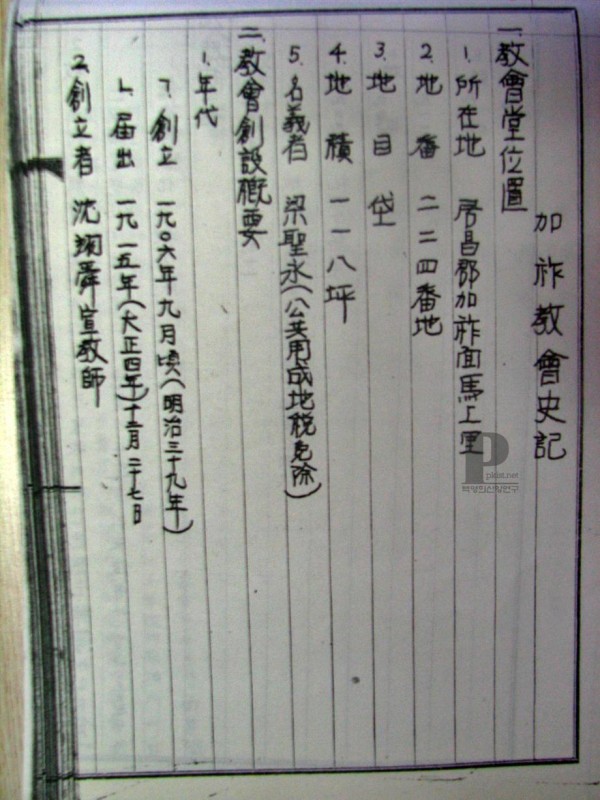 加祚教會史記
一、教會堂位置
1. 所在地 居昌郡加祚面馬上里
2. 地番 二二四番地
3. 地目 垈
4. 地積 一一八坪
5. 名義者 梁聖永(公共用成地税免除)
二、教會創設概要
1. 年代
ㄱ. 創立 一九〇六年九月頃(明治三十九年)
ㄴ. 届出 一九一五年(大正四年)十二月二十七日
2. 創立者 沈翊舜宣教師
P
pkist.net
백영희신앙연구